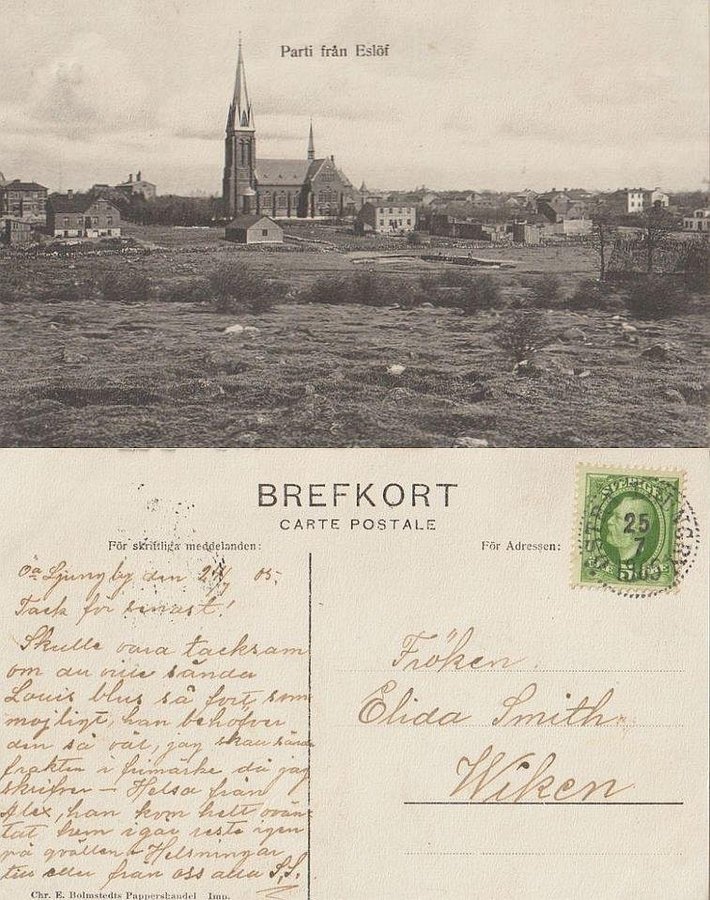 Parti från Eslöf
BREFKORT
CARTE POSTALE
För skriftliga meddelanden:
För Adressen:
SVERIGE
25
7
1905
Öa Ljungby den 05.
Tack för senast!
Skulle vara tacksam
om du ville sända
Louis blus så fort som
mojligt, han behöfver
den så väl, jag skall sända
frakten i frimärke då jag
skrifver – Helsa från
Alex, han kom helt ovän-
tat hem igår reste igen
på qvällen. Helsningar
till eder från oss alla S.S.
Fröken
Elida Smith
Wiken
Chr. E. Bolmstedts Pappershandel Imp.